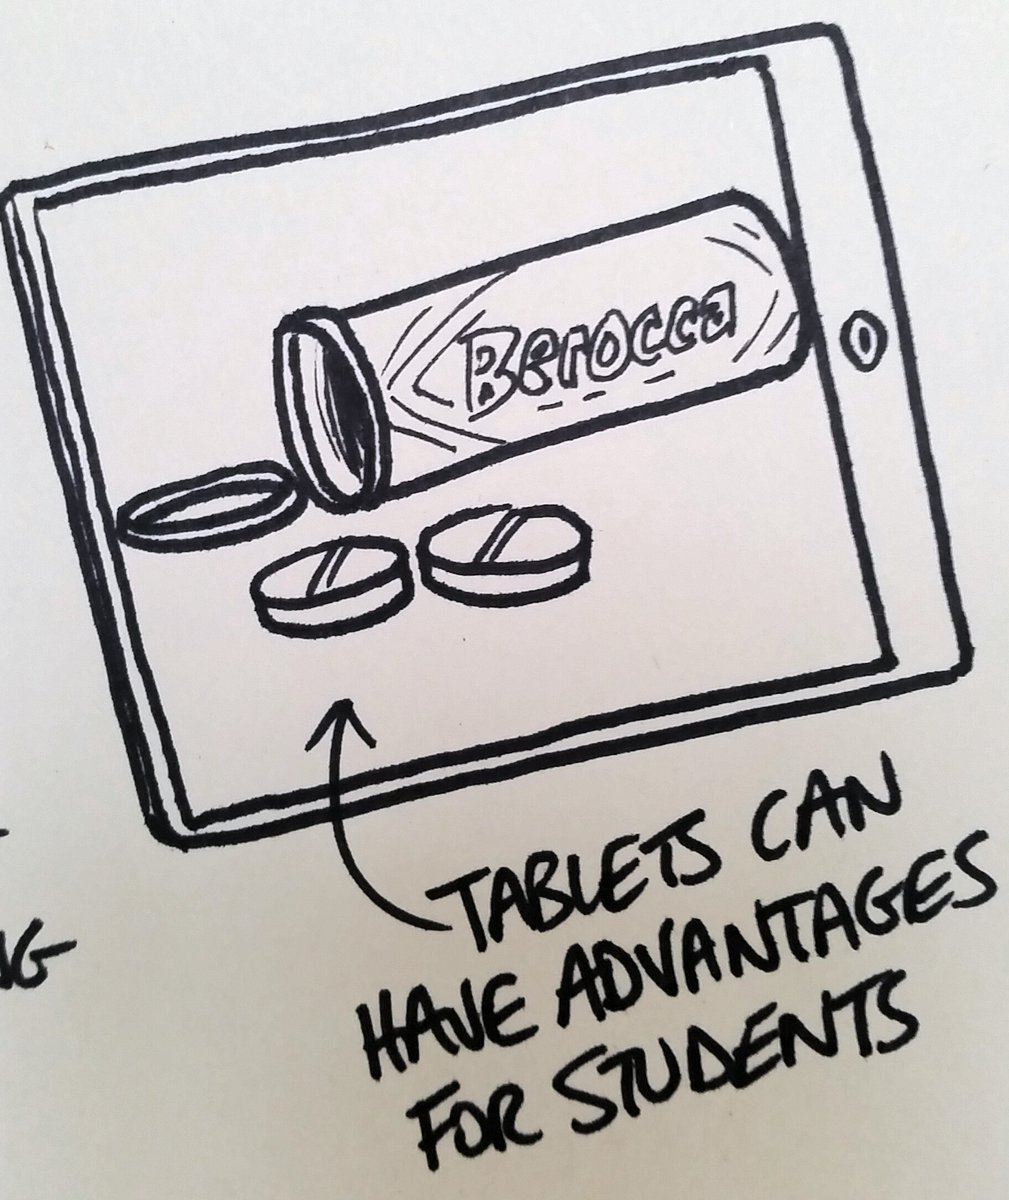 Berocca
TABLETS CAN
HAVE ADVANTAGES
FOR STUDENTS